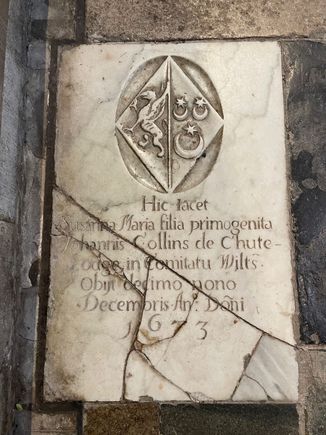 Hic Iacet
Susanna Maria filia primogenita
Johannis Collins de Chute-
Lodge in Comitatu Wilts.
Obijt decimo nono
Decembris An°. Dōni
1673